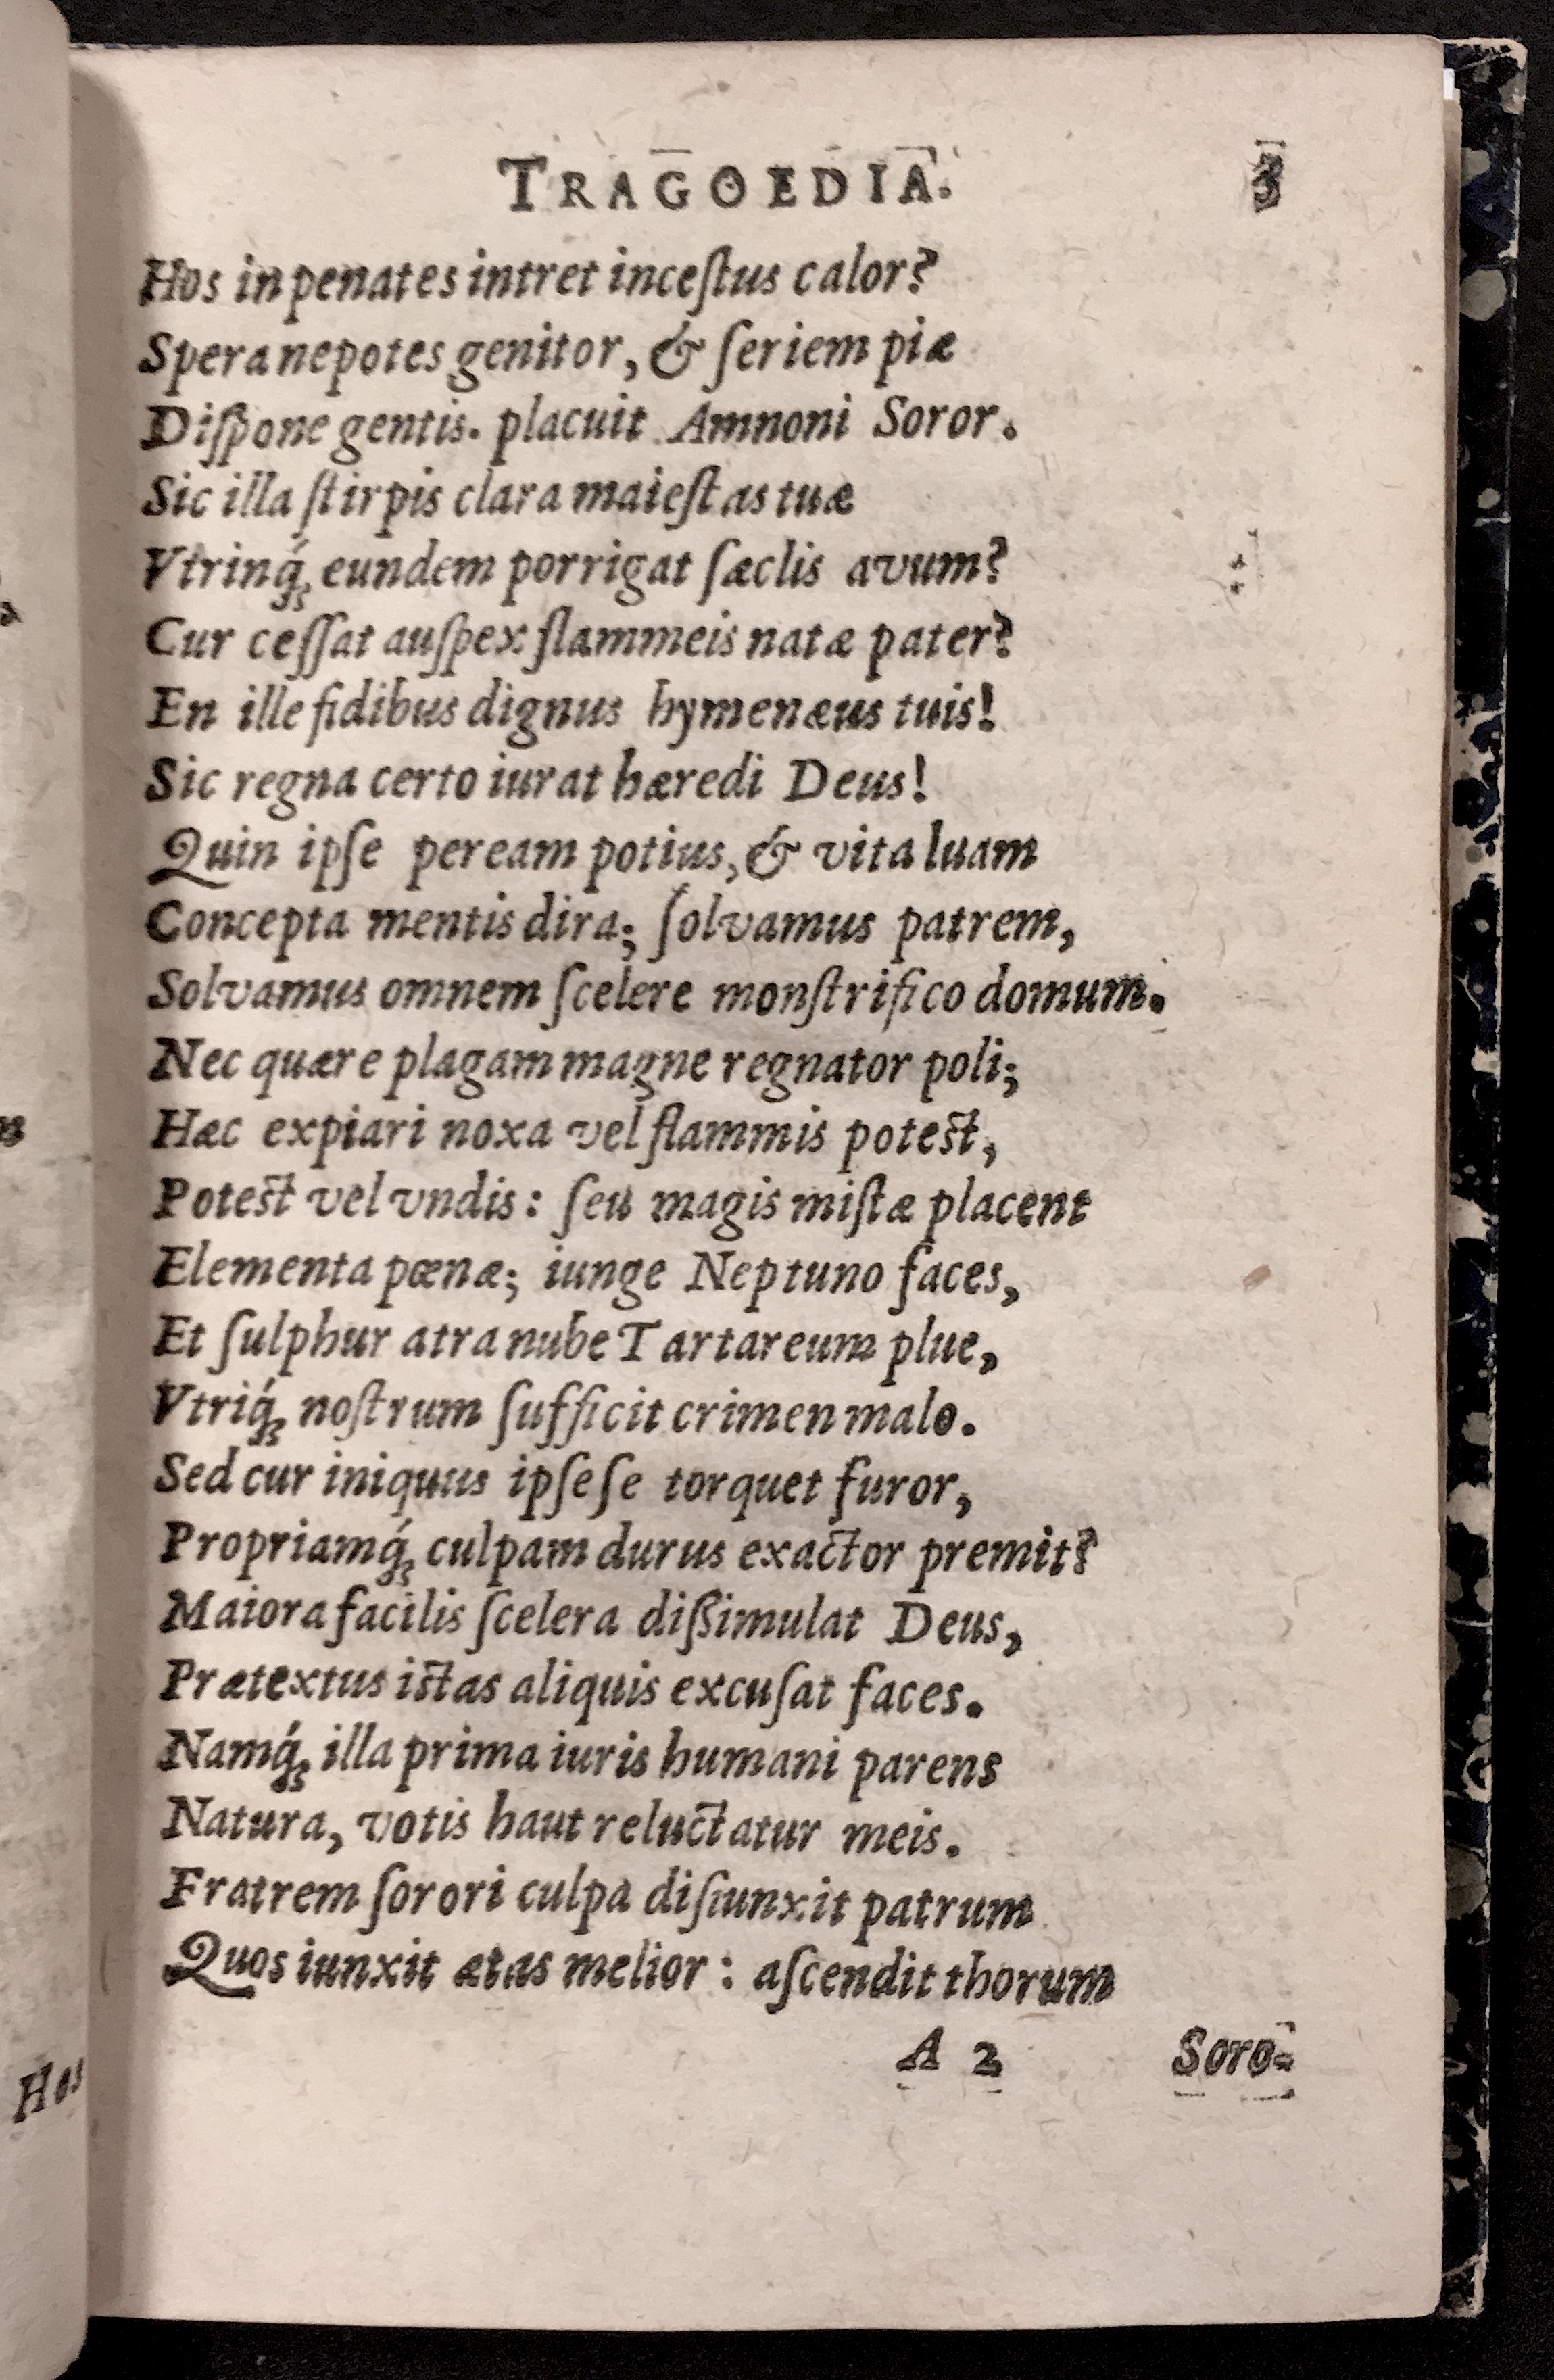 TRAGOEDIA. 3
Hos in penates intret incestus calor?
Spera nepotes genitor, & seriem piæ
Dispone gentis. placuit Amnoni Soror.
Sic illa stirpis clara maiestas tuæ
Vtrinq́; eundem porrigat sæclis avum?
Cur cessat auspex flammeis natæ pater?
En ille fidibus dignus hymenæus tuis!
Sic regna certo iurat hæredi Deus!
Quin ipse peream potius, & vita luam
Concepta mentis dira; solvamus patrem,
Solvamus omnem scelere monstrifico domum.
Nec quære plagam magne regnator poli;
Hæc expiari noxa vel flammis potest,
Potest vel vndis: seu magis mistæ placent
Elementa pœnæ; iunge Neptuno faces,
Et sulphur atra nube Tartareum plue,
Vtriq́; nostrum sufficit crimen malo.
Sed cur iniquus ipse se torquet furor,
Propriamq́; culpam durus exactor premit?
Maiora facilis scelera dißimulat Deus,
Prætextus istas aliquis excusat faces.
Namq́; illa prima iuris humani parens
Natura, votis haut reluctatur meis.
Fratrem sorori culpa disiunxit patrum
Quos iunxit ætas melior: ascendit thorum
A 2 Soro-
Hos